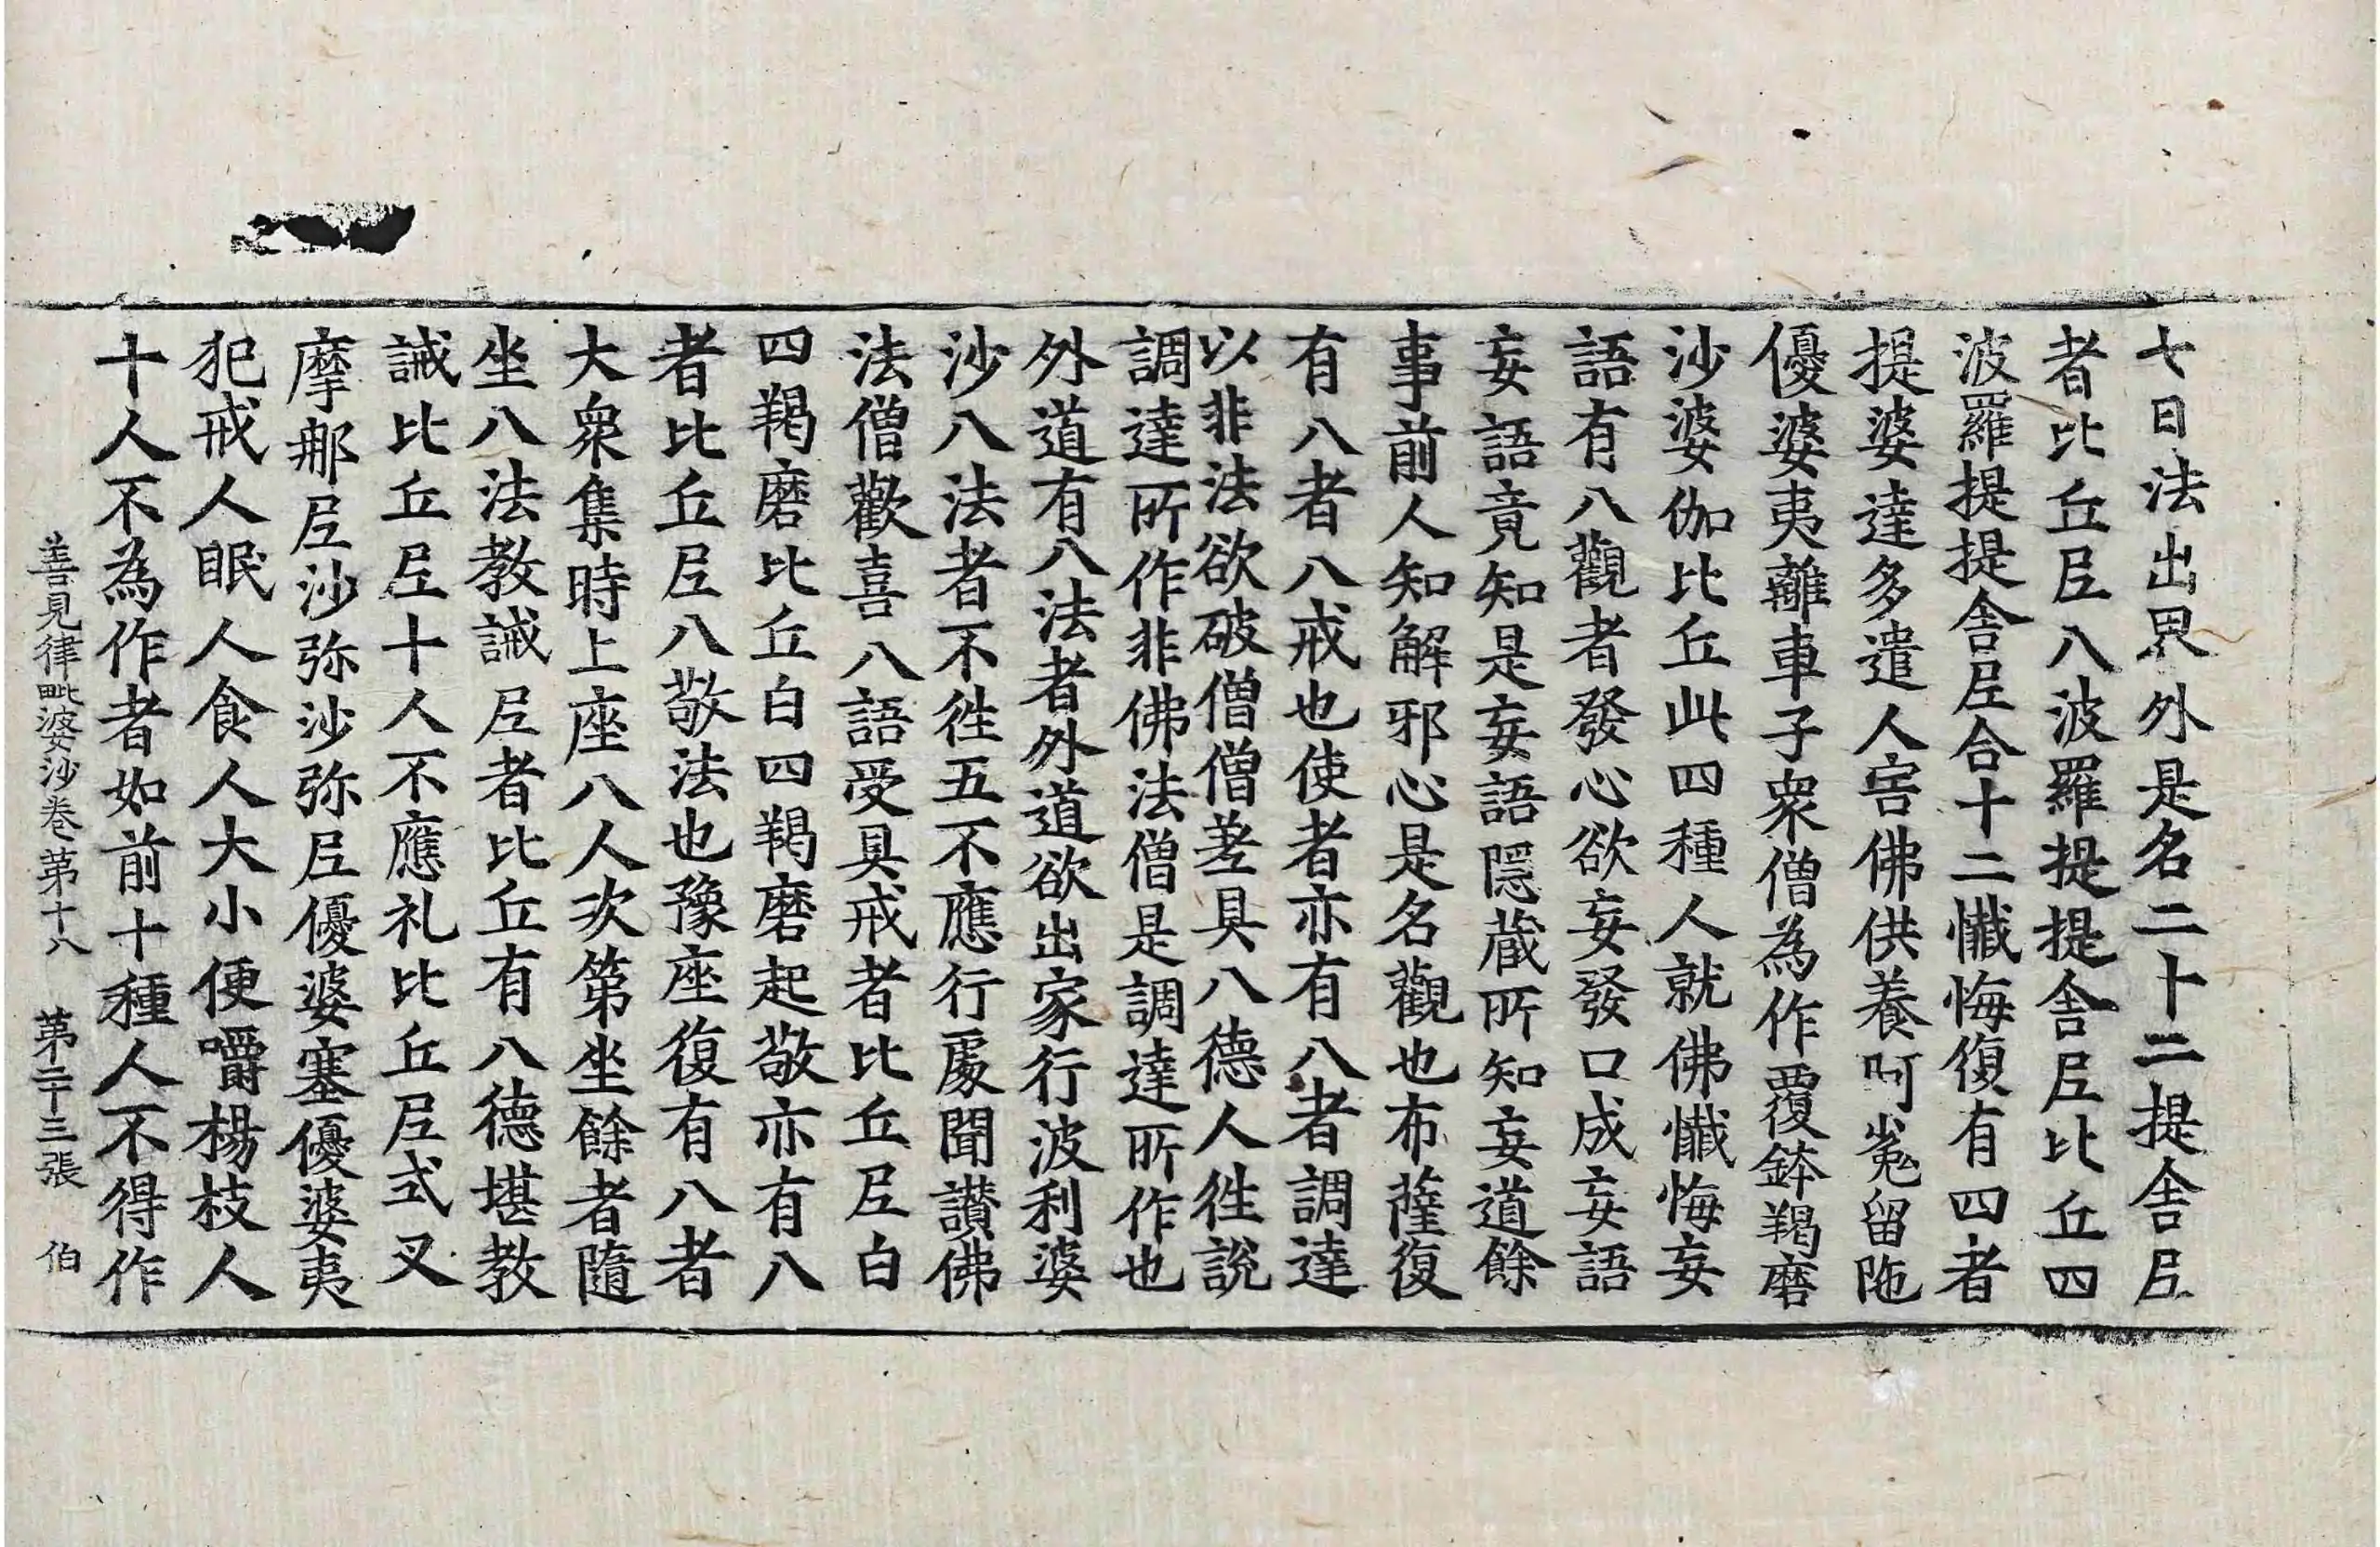 七日法出界外是名二十二提舍𡰱
者比丘𡰱八波羅提提舍𡰱比丘四
波羅提提舍𡰱合十二懺悔復有四者
提婆達多遣人害佛供養呵嵬留陁
優婆夷離車子衆僧為作覆鉢羯磨
沙婆伽比丘此四種人就佛懺悔妄
語有八觀者發心欲妄發口成妄語
妄語竟知是妄語隱蔵所知妄道餘
事前人知解邪心是名觀也布薩復
有八者八戒也使者亦有八者調達
以非法欲破僧僧差具八德人徃說
調達所作非佛法僧是調達所作也
外道有八法者外道欲出家行波利婆
沙八法者不徃五不應行處聞讃佛
法僧歡喜八語受具戒者比丘𡰱白
四羯磨比丘白四羯磨起敬亦有八
者比丘𡰱八敬法也豫座復有八者
大衆集時上座八人次第坐餘者隨
坐八法教誡𡰱者比丘有八德堪教
誡比丘𡰱十人不應礼比丘𡰱式叉
摩那𡰱沙弥沙弥𡰱優婆塞優婆夷
犯戒人眠人食人大小便嚼楊枝人
十人不為作者如前十種人不得作
善見律毗婆沙卷第十八 第二十三張 伯